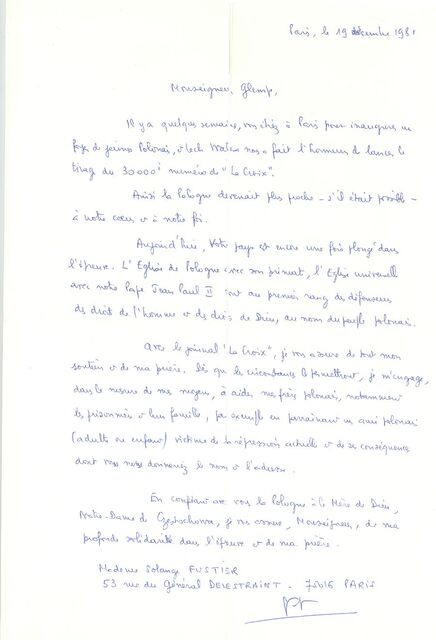 Paris, le 19 décembre 1981
Monseigneur Glemp,
Il y a quelques semaine, vous étiez à Paris pour inaugurer un
foyer de jeunes Polonais, et Lech Walesa nous a fait l'honneur de lancer le
tirage du 30 000è numéro de "La Croix".
Ainsi la Pologne devenait plus proche - s'il était possible -
à notre cœur et à notre foi.
Aujourd'hui, votre pays est encore une fois plongé dans
l'épreuve. L'Eglise de Pologne avec son primat, l'Eglise universelle
avec notre Pape Jean Paul II sont au premier rang des défenseurs
des droits de l'homme et des droits de Dieu, au nom du peuple polonais.
Avec le journal "La Croix", je vous assure de tout mon
soutien et de ma prière. Dès que les circonstances le permettront, je m'engage,
dans la mesure de mes moyens, à aider mes frères polonais, notamment
les prisonniers et leur famille, par exemple en parrainant un ami polonais
(adulte ou enfant) victime de la répression actuelle et de ses conséquences
dont vous nous donnerez le nom et l'adresse.
En confiant avec vous la Pologne à la Mère de Dieu,
Notre-Dame de Czestochowa, je vous assure, Monseigneur, de ma
profonde solidarité dans l'épreuve et de ma prière.
Madame Solange FUSTIER
53 rue du Général DELESTRAINT - 75016 PARIS